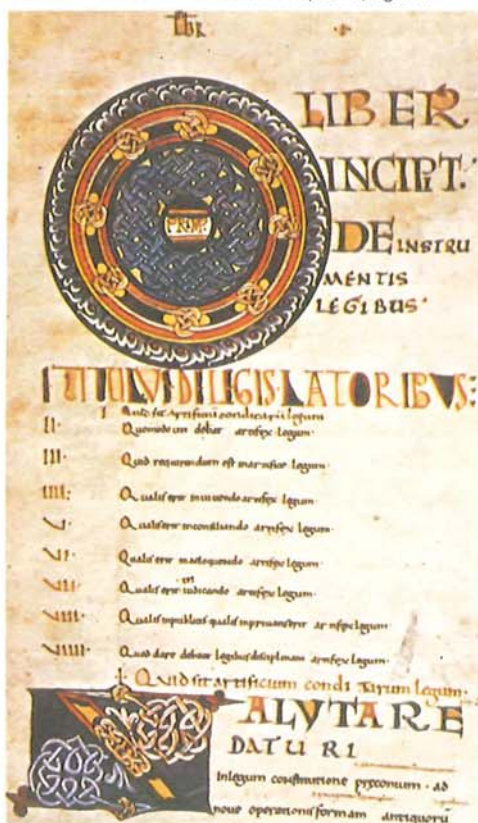 LIBER
INCIPIT.
DE INSTRU
MENTIS
LEGIBUS
I TITULUS DE LEGISLATORIBUS:
I Quid sit artificium condendarum legum
II· Quomodo debet artifex legum·
III· Quid requirendum est in artifice legum·
IIII: Qualis erit in vivendo artifex legum·
VI· Qualis erit in consiliando artifex legum·
VI· Qualis erit in eloquendo artifex legum·
VII· Qualis erit in iudicando artifex legum·
VIII· Qualis in publicis qualis in privatis erit artifex legum·
VIIII· Quod dare debeat legibus disciplinam artifex legum·
Quid sit artificium condendarum legum·
SALUTARE
DATURI
In legum constitutione preconium· ad
nove operationis formam antiquorum